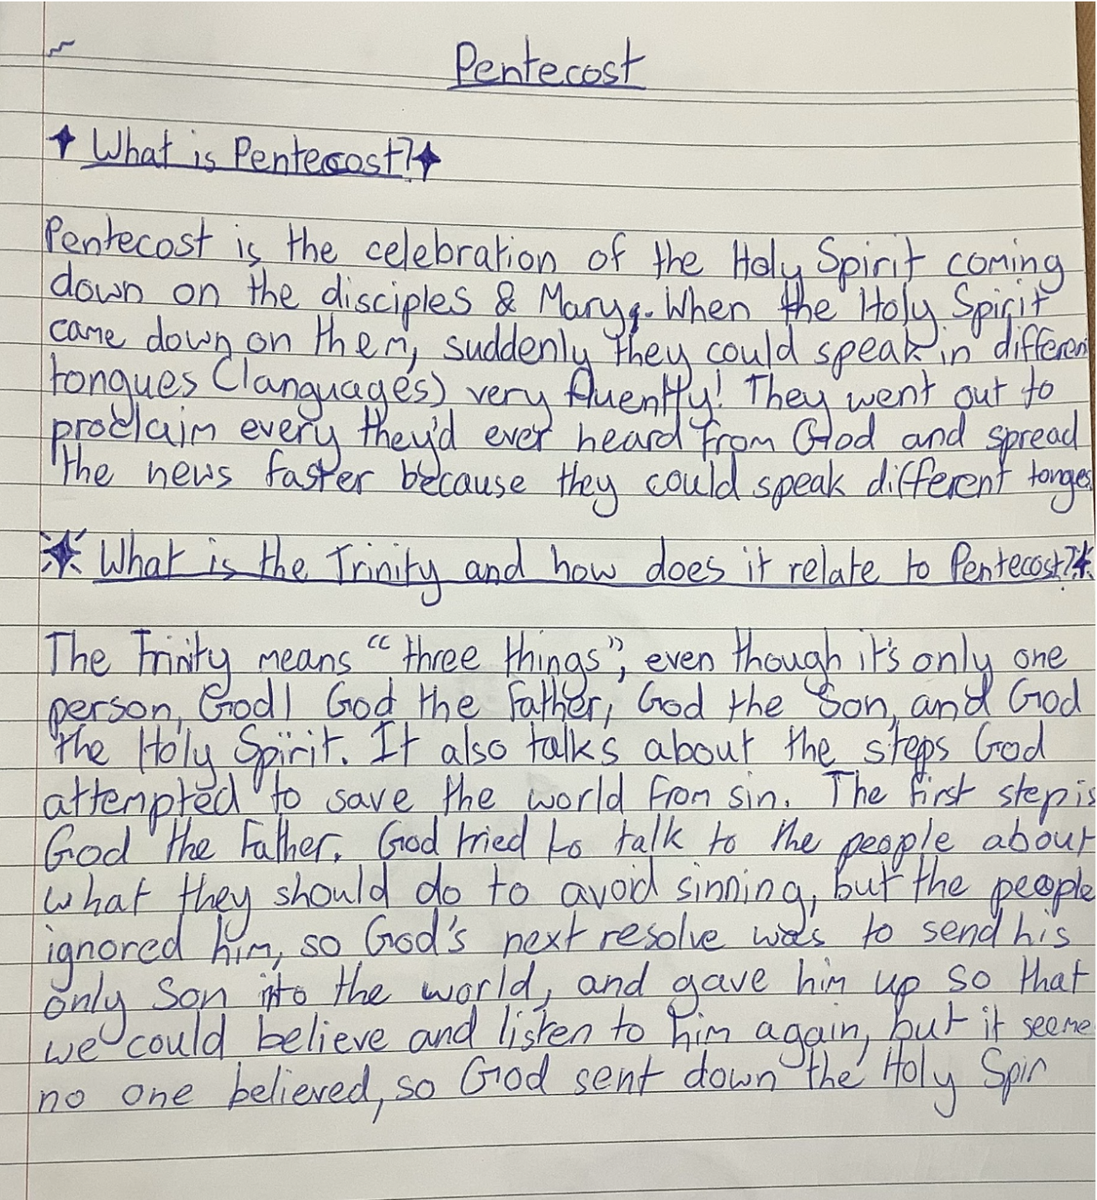 Pentecost
What is Pentecost?
Pentecost is the celebration of the Holy Spirit coming
down on the disciples & Mary. When the Holy Spirit
came down on them, suddenly they could speak in differen
tongues (languages) very fluently! They went out to
proclaim every they'd ever heard from God and spread
the news faster because they could speak different tonges
What is the Trinity and how does it relate to Pentecost?
The Trinity means "three things", even though it's only one
person, God! God the Father, God the Son, and God
the Holy Spirit. It also talks about the steps God
attempted to save the world from sin. The first step is
God the Father. God tried to talk to the people about
what they should do to avoid sinning, but the people
ignored him, so God's next resolve was to send his
only Son into the world, and gave him up so that
we could believe and listen to him again, but it seeme
no one believed, so God sent down the Holy Spir